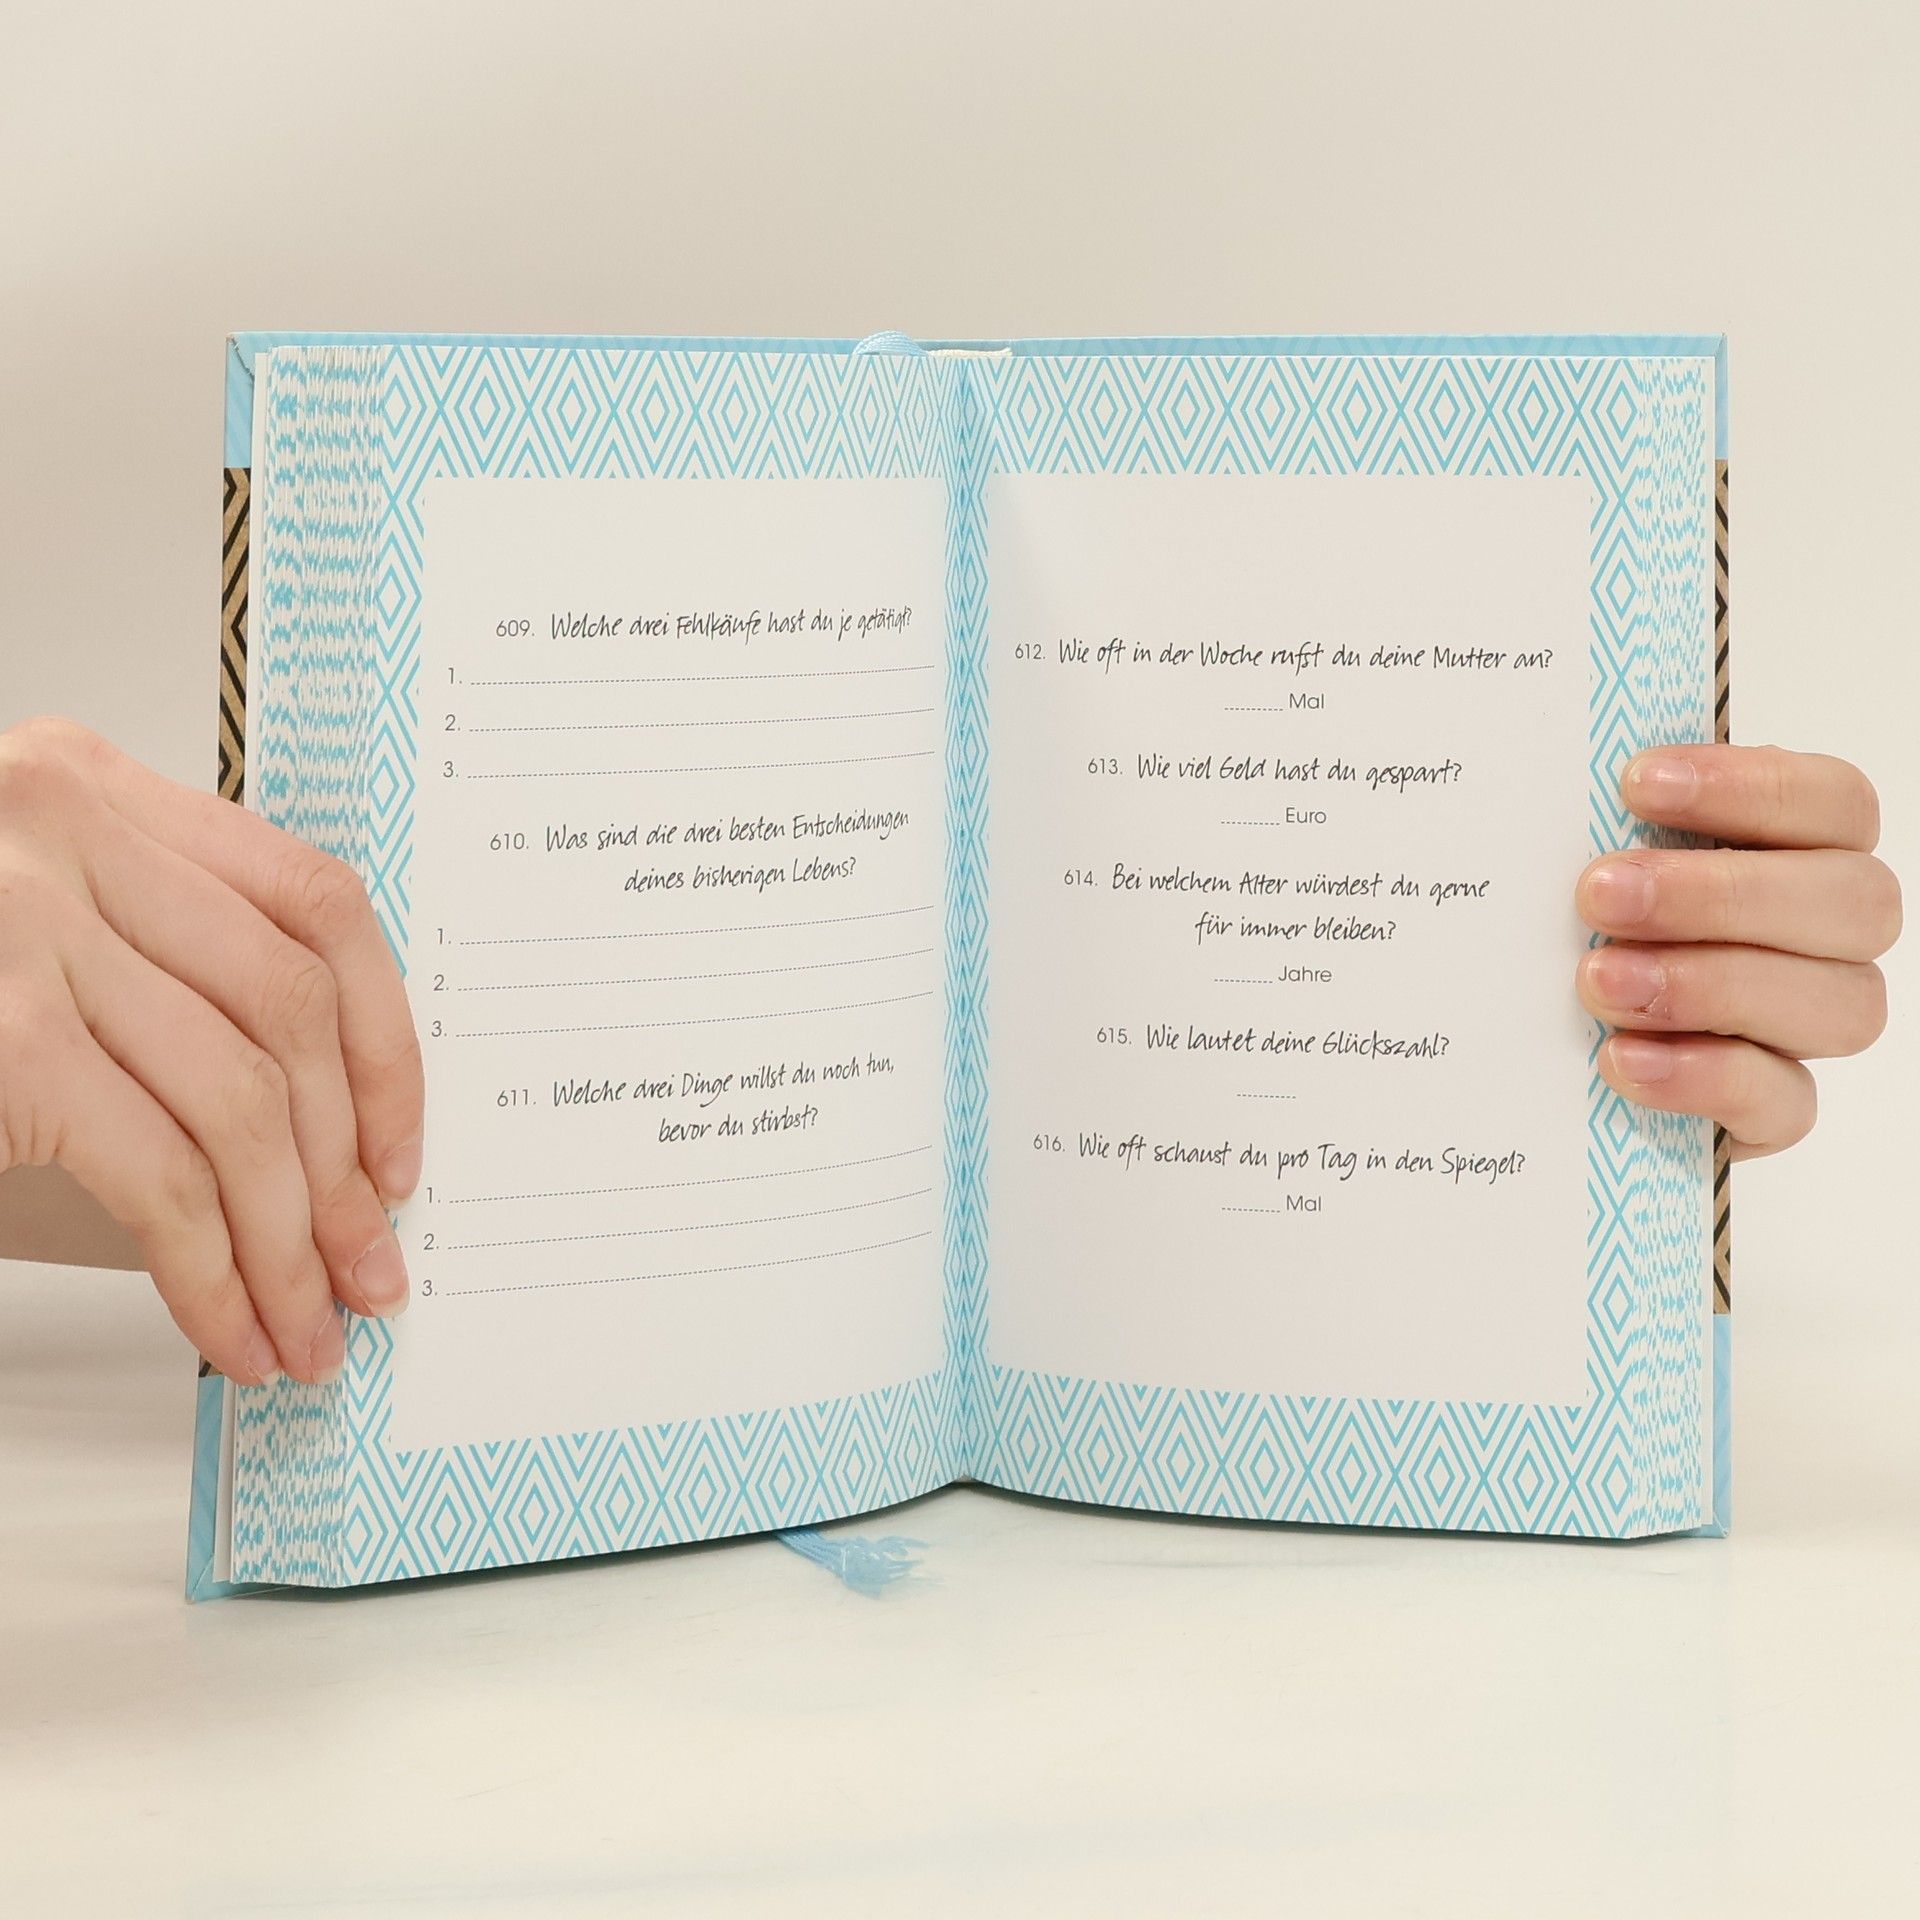 609. Welche drei Fehlkäufe hast du je getätigt?
1.
2.
3.
610. Was sind die drei besten Entscheidungen
deines bisherigen Lebens?
1.
2.
3.
611. Welche drei Dinge willst du noch tun,
bevor du stirbst?
1.
2.
3.
612. Wie oft in der Woche rufst du deine Mutter an?
Mal
613. Wie viel Geld hast du gespart?
Euro
614. Bei welchem Alter würdest du gerne
für immer bleiben?
Jahre
615. Wie lautet deine Glückszahl?
616. Wie oft schaust du pro Tag in den Spiegel?
Mal